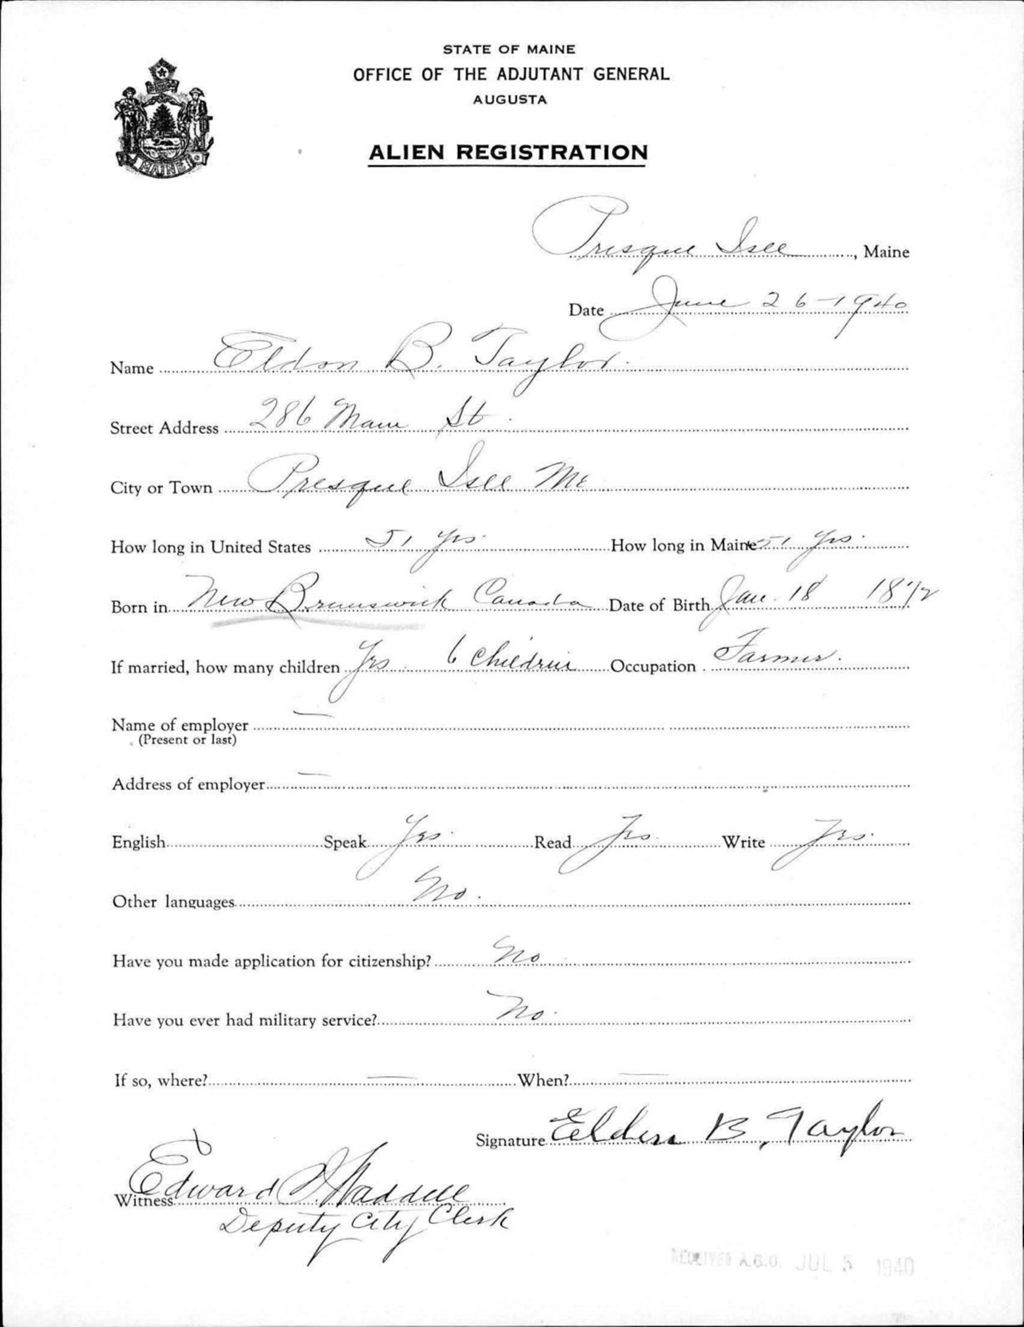 STATE OF MAINE
OFFICE OF THE ADJUTANT GENERAL
AUGUSTA
MAINE
ALIEN REGISTRATION
Presque Isle, Maine
Date June 26-1940
Name Eldon B. Taylor.
Street Address 286 Main St.
City or Town Presque Isle Me
How long in United States 51 Yrs. How long in Maine 51 Yrs.
Born in New Brunswick Canada Date of Birth Jan. 18
If married, how many children Yes. 6 Children Occupation Farmer.
Name of employer —
(Present or last)
Address of employer —
English Speak Yes. Read Yes. Write Yes.
Other languages No.
Have you made application for citizenship? No
Have you ever had military service? No.
If so, where? — When? —
Signature Eldon B. Taylor
Witness Edward Waddell
Deputy City Clerk
RECEIVED A.G.O. JUL 5 1940